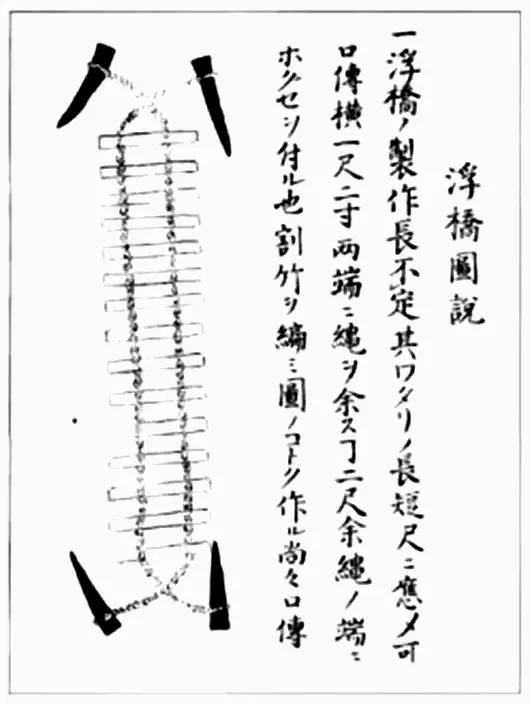 浮橋圖説
一浮橋ノ製作長不定其ワタリノ長短尺ニ應メ可
口傳横一尺二寸兩端ニ縄ヲ余スヿ二尺余縄ノ端ニ
ホグセヲ付ル也割竹ヲ編ミ圖ノコトク作ル尚々口傳